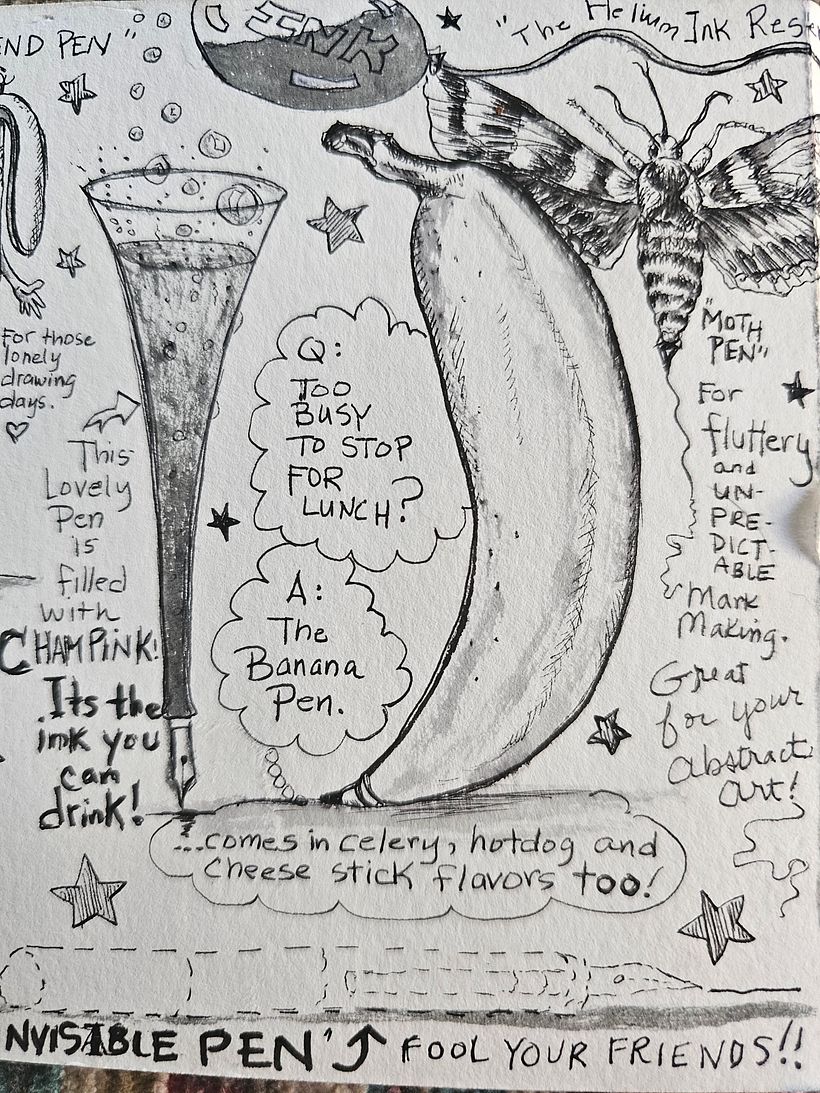 END PEN"
INK
"The Helium Ink Res
For those
lonely
drawing
days.
This
Lovely
Pen
is
filled
with
CHAMPINK!
Its the
ink you
can
drink!
Q:
TOO
BUSY
TO STOP
FOR
LUNCH?
A:
The
Banana
Pen.
...comes in celery, hotdog and
cheese stick flavors too!
"MOTH
PEN"
For
fluttery
and
UN-
PRE-
DICT-
ABLE
Mark
Making.
Great
for your
abstract
art!
NVISIBLE PEN" FOOL YOUR FRIENDS!!